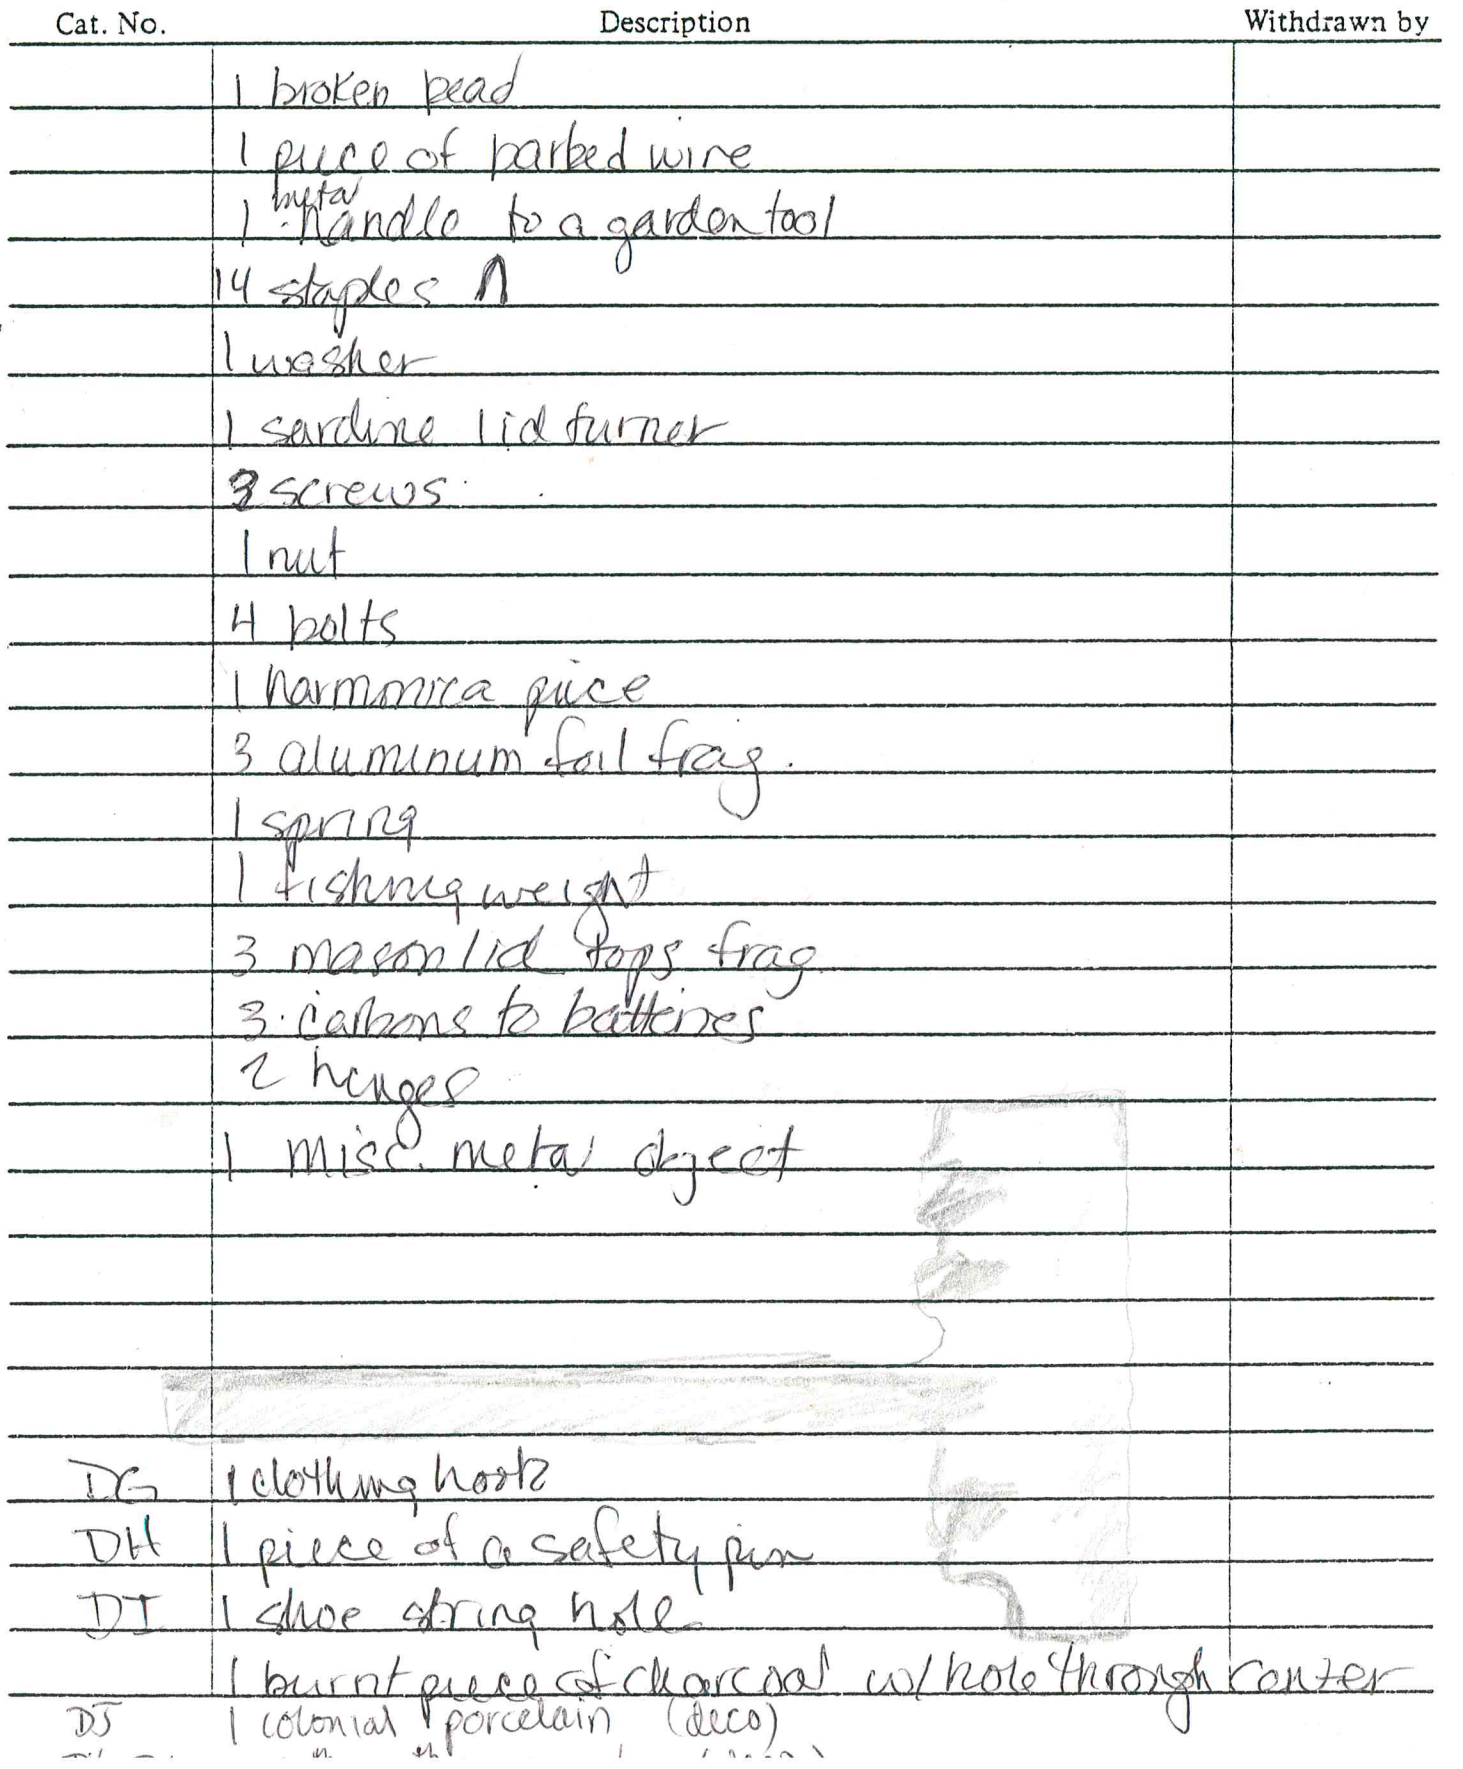 Cat. No. Description Withdrawn by
1 broken bead
1 piece of barbed wire
metal
1 handle to a garden tool
14 staples
1 washer
1 sardine lid turner
3 screws
1 nut
4 bolts
1 harmonica piece
3 aluminum foil frag.
1 spring
1 fishing weight
3 mason lid tops frag
3 carbons to batteries
2 hinges
1 misc. metal object
DG 1 clothing hook
DH 1 piece of a safety pin
DI 1 shoe string hole
1 burnt piece of charcoal w/ hole through center
DJ 1 colonial porcelain (deco)